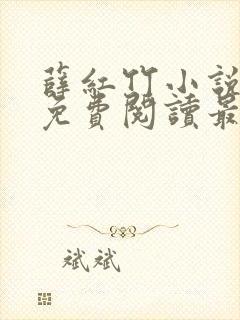 薛紅竹小說
免費閱讀最
斌斌